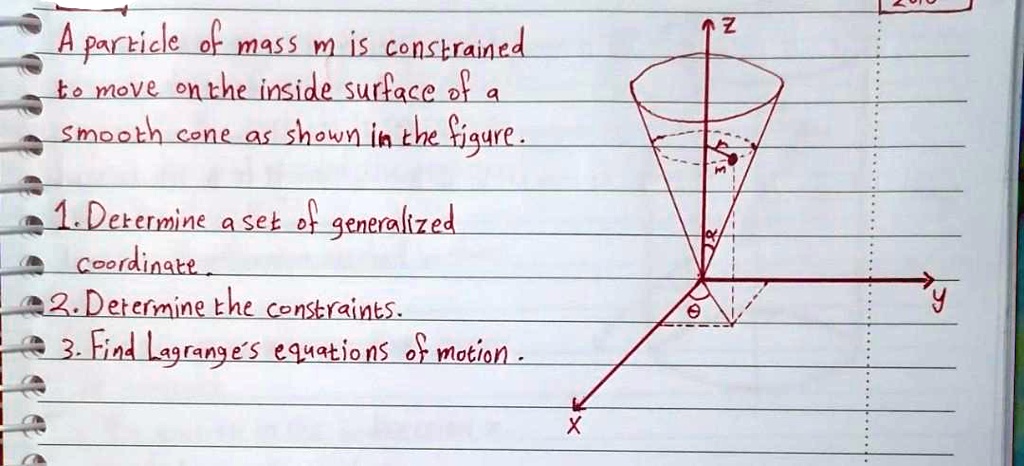 A particle of mass m is constrained
to move on the inside surface of a
smooth cone as shown in the figure.
1. Determine a set of generalized
coordinate.
2. Determine the constraints.
3. Find Lagrange's equations of motion.
z
r
m
α
θ
y
x